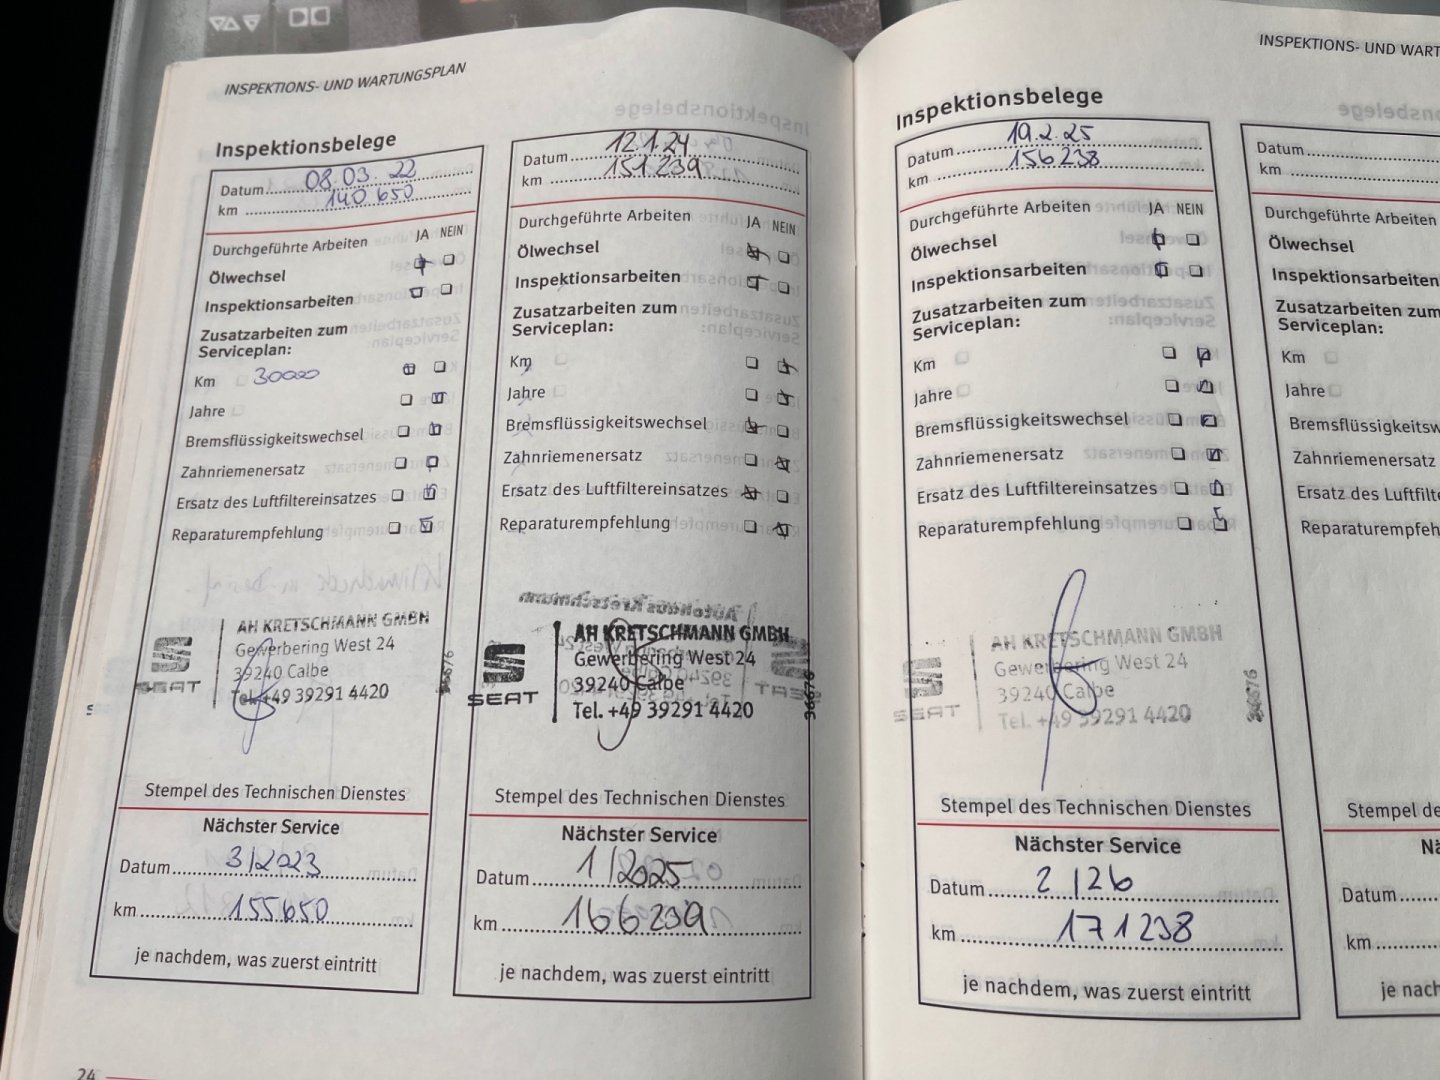 INSPEKTIONS- UND WARTUNGSPLAN
Inspektionsbelege
Datum 08.03.22
km 140 650
Durchgeführte Arbeiten JA NEIN
Ölwechsel
Inspektionsarbeiten
Zusatzarbeiten zum
Serviceplan:
Km 30000
Jahre
Bremsflüssigkeitswechsel
Zahnriemenersatz
Ersatz des Luftfiltereinsatzes
Reparaturempfehlung
SEAT
AH KRETSCHMANN GMBH
Gewerbering West 24
39240 Calbe
Tel. +49 39291 4420
Stempel des Technischen Dienstes
Nächster Service
Datum 3/2023
km 155650
je nachdem, was zuerst eintritt
24
Datum 12.1.24
km 151 239
Durchgeführte Arbeiten JA NEIN
Ölwechsel
Inspektionsarbeiten
Zusatzarbeiten zum
Serviceplan:
Km
Jahre
Bremsflüssigkeitswechsel
Zahnriemenersatz
Ersatz des Luftfiltereinsatzes
Reparaturempfehlung
SEAT
AH KRETSCHMANN GMBH
Gewerbering West 24
39240 Calbe
Tel. +49 39291 4420
36676
Stempel des Technischen Dienstes
Nächster Service
Datum 1/2025
km 166 239
je nachdem, was zuerst eintritt
INSPEKTIONS- UND WART
Inspektionsbelege
Datum 19.2.25
km 156 238
Durchgeführte Arbeiten JA NEIN
Ölwechsel
Inspektionsarbeiten
Zusatzarbeiten zum
Serviceplan:
Km
Jahre
Bremsflüssigkeitswechsel
Zahnriemenersatz
Ersatz des Luftfiltereinsatzes
Reparaturempfehlung
SEAT
AH KRETSCHMANN GMBH
Gewerbering West 24
39240 Calbe
Tel. +49 39291 4420
36676
Stempel des Technischen Dienstes
Nächster Service
Datum 2/26
km 171 238
je nachdem, was zuerst eintritt
Datum
km
Durchgeführte Arbeiten
Ölwechsel
Inspektionsarbeiten
Zusatzarbeiten zum
Serviceplan:
Km
Jahre
Bremsflüssigkeitsw
Zahnriemenersatz
Ersatz des Luftfilt
Reparaturempfeh
Stempel de
Nä
Datum
km
je nach